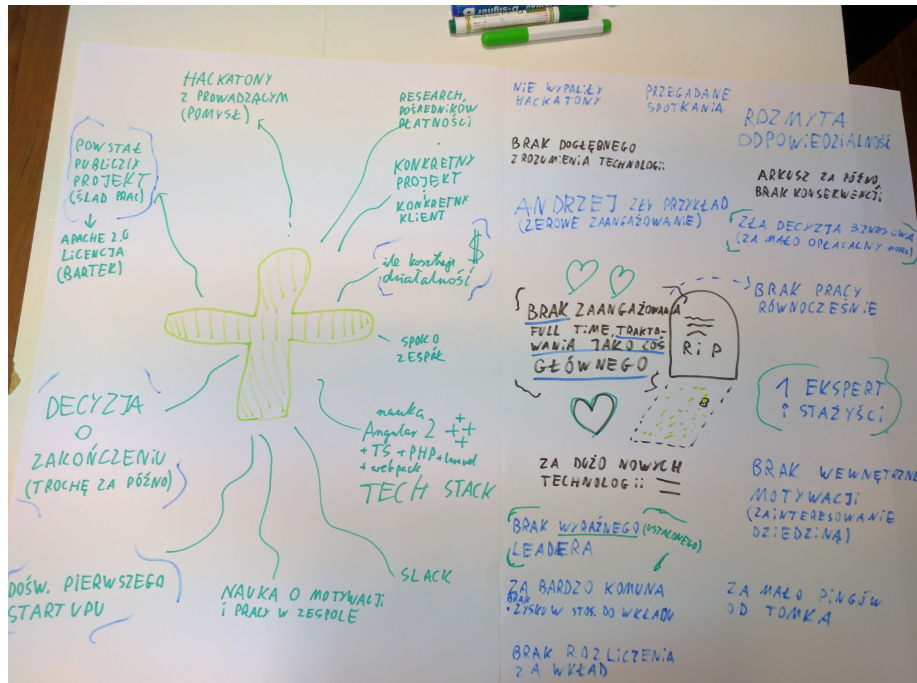 HACKATONY
Z PROWADZĄCYM
(POMYSŁ)
RESEARCH,
POŚREDNIKÓW
PŁATNOŚCI
KONKRETNY
PROJEKT
I
KONKRETNY
KLIENT
POWSTAŁ
PUBLICZNY
PROJEKT
(ŚLAD PRAC)
APACHE 2.0
LICENCJA
(BARTEK)
ile kosztuje $
działalność
SPOKO
ZESPÓŁ
DECYZJA
O
ZAKOŃCZENIU
(TROCHĘ ZA PÓŹNO)
nauka
Angular 2 ++
+ TS + PHP + Laravel
+ webpack
TECH STACK
DOŚW. PIERWSZEGO
STARTUPU
NAUKA O MOTYWACJI
I PRACY W ZESPOLE
SLACK
NIE WYPALIŁY
HACKATONY
PRZEGADANE
SPOTKANIA
ROZMYTA
ODPOWIEDZIALNOŚĆ
BRAK DOGŁĘBNEGO
ZROZUMIENIA TECHNOLOGII
ARKUSZ ZA PÓŹNO,
BRAK KONSEKWENCJI
ANDRZEJ ZŁY PRZYKŁAD
(ZEROWE ZAANGAŻOWANIE)
ZŁA DECYZJA BIZNESOWA
(ZA MAŁO OPŁACALNY MODEL)
BRAK PRACY
RÓWNOCZEŚNIE
BRAK ZAANGAŻOWANIA
FULL TIME, TRAKTO-
WANIA JAKO COŚ
GŁÓWNEGO
RiP
1 EKSPERT
i STAŻYŚCI
ZA DUŻO NOWYCH
TECHNOLOGII
BRAK WEWNĘTRZNEJ
MOTYWACJI
(ZAINTERESOWANIE
DZIEDZINĄ)
BRAK WYRAŹNEGO (USTALONEGO)
LEADERA
ZA BARDZO KOMUNA
BRAK
ZYSKÓW STOS. DO WKŁADU
ZA MAŁO PINGÓW
OD TOMKA
BRAK ROZLICZENIA
ZA WKŁAD